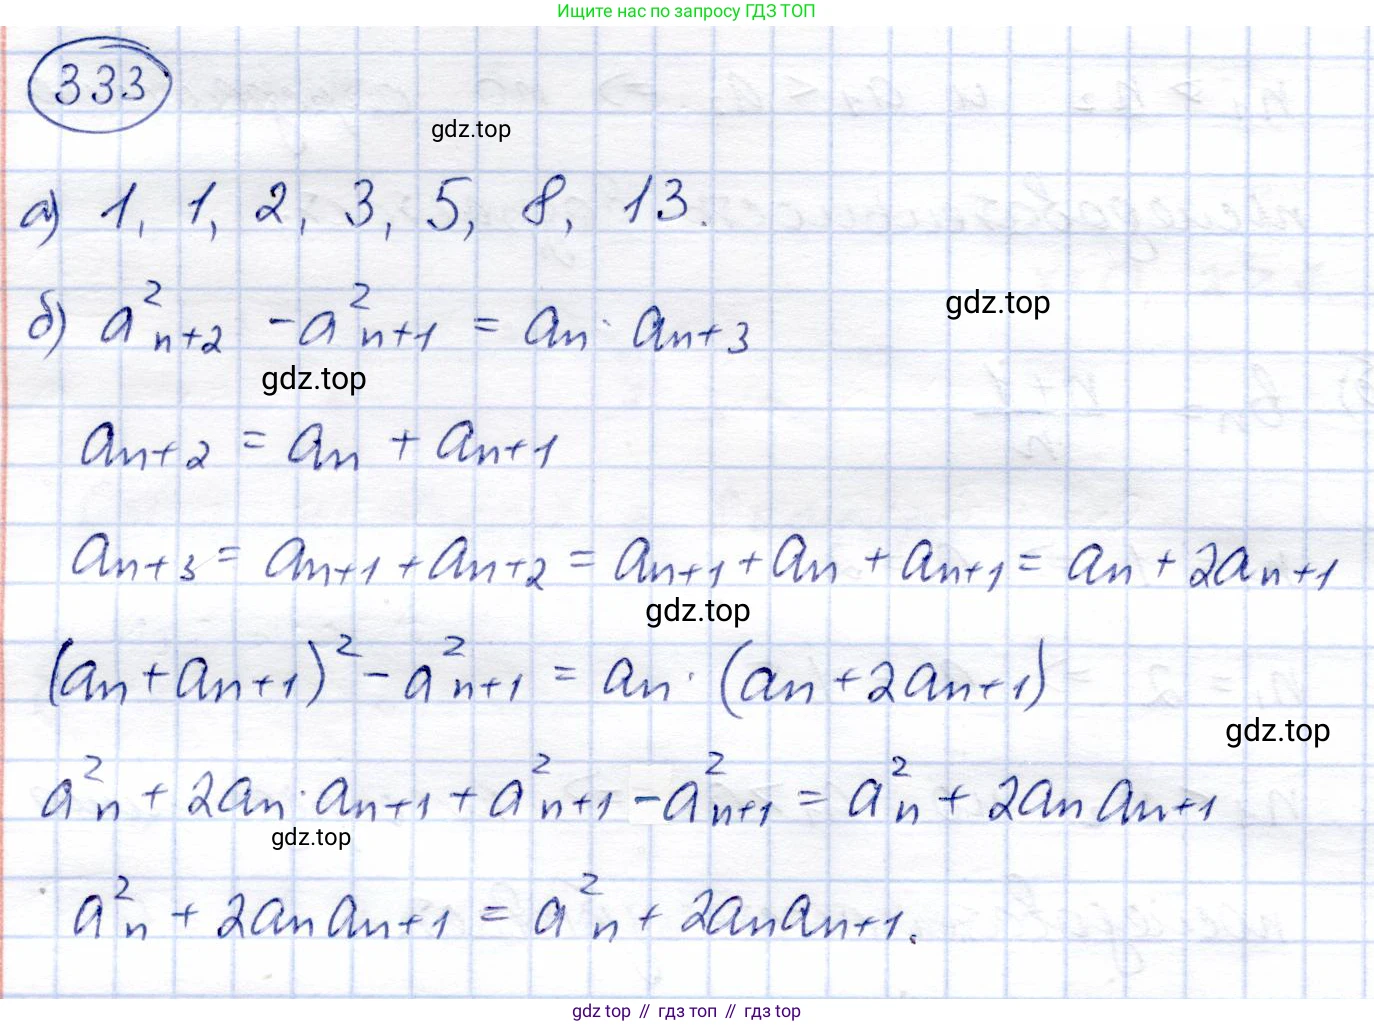 Ищите нас по запросу ГДЗ ТОП
333
gdz.top
а) 1, 1, 2, 3, 5, 8, 13.
б) a²ₙ₊₂ - a²ₙ₊₁ = aₙ · aₙ₊₃
gdz.top
gdz.top
aₙ₊₂ = aₙ + aₙ₊₁
aₙ₊₃ = aₙ₊₁ + aₙ₊₂ = aₙ₊₁ + aₙ + aₙ₊₁ = aₙ + 2aₙ₊₁
gdz.top
(aₙ + aₙ₊₁)² - a²ₙ₊₁ = aₙ · (aₙ + 2aₙ₊₁)
gdz.top
a²ₙ + 2aₙ · aₙ₊₁ + a²ₙ₊₁ - a²ₙ₊₁ = a²ₙ + 2aₙ aₙ₊₁
gdz.top
a²ₙ + 2aₙ aₙ₊₁ = a²ₙ + 2aₙaₙ₊₁.
gdz top // гдз топ // гдз top